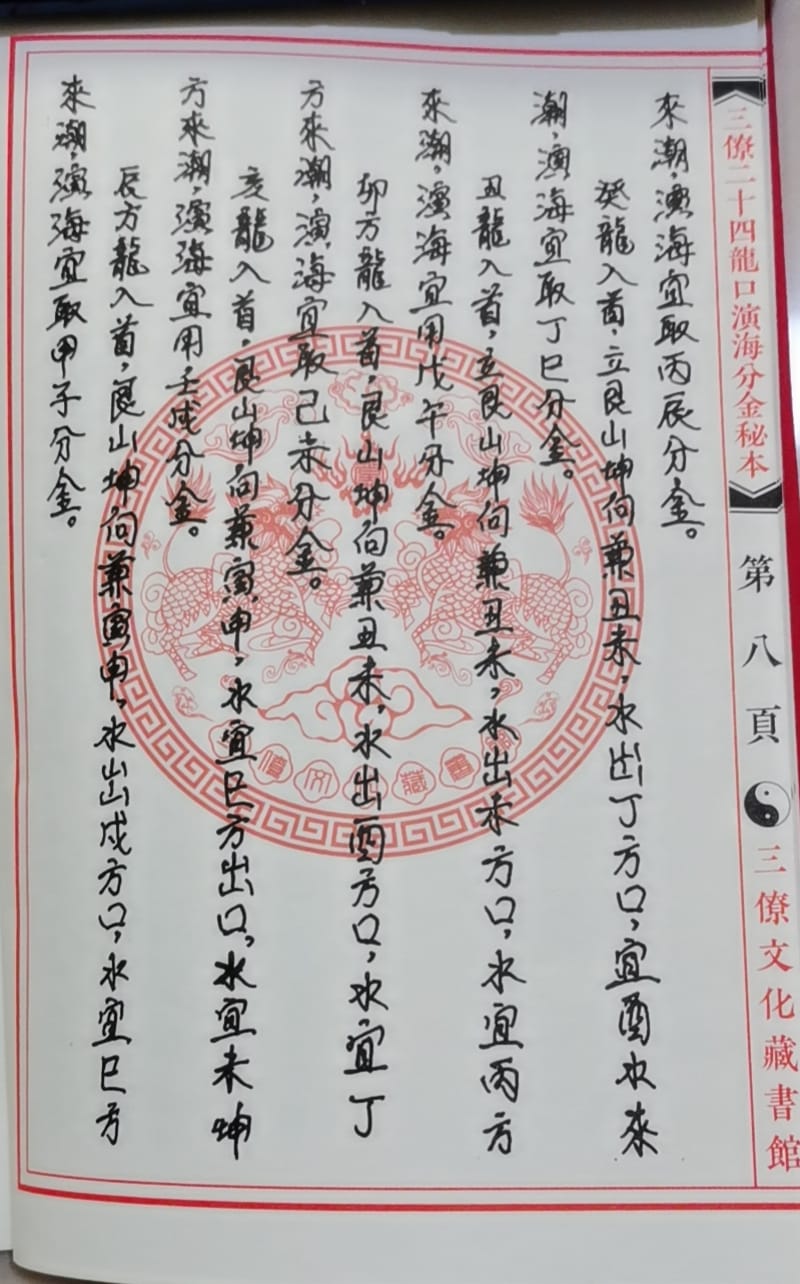 三僚二十四龍口演海分金秘本
第八頁
三僚文化藏書館
來潮,演海宜取丙辰分金。
癸龍入首,立艮山坤向兼丑未,水出丁方口,宜酉水來
潮,演海宜取丁巳分金。
丑龍入首,立艮山坤向兼丑未,水出未方口,水宜丙方
來潮,演海宜用戊午分金。
卯方龍入首,艮山坤向兼丑未,水出酉方口,水宜丁
方來潮,演海宜取己未分金。
亥龍入首,艮山坤向兼寅申,水宜巳方出口,水宜未坤
方來潮,演海宜用壬戌分金。
辰方龍入首,艮山坤向兼寅申,水出戌方口,水宜巳方
來潮,演海宜取甲子分金。
藏書